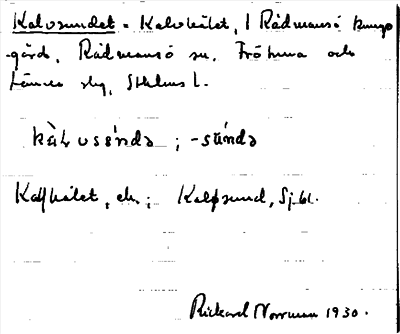 Kalvsundet = Kalvhålet, i Rådmansö kungs-
gård, Rådmansö sn. Frötuna och
Länna skg, Sthlms l.
Kalvhålet, ek.; Kalfsund, Sj.kt.
Rickard Norrman 1930.